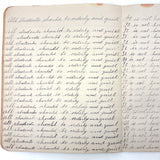 All students should be orderly and quiet
All students should be orderly and quiet
All students should be orderly and quiet
All students should be orderly and quiet
All students should be orderly and quiet
All students should be orderly and quiet
All students should be orderly and quiet
All students should be orderly and quiet
All students should be orderly and quiet
All students should be orderly and quiet
All students should be orderly and quiet
All students should be orderly and quiet
All students should be orderly and quiet
It is not
It is not
It is not
It is not
It is not
It is not
It is not
It is not
It is not
It is not
It is not